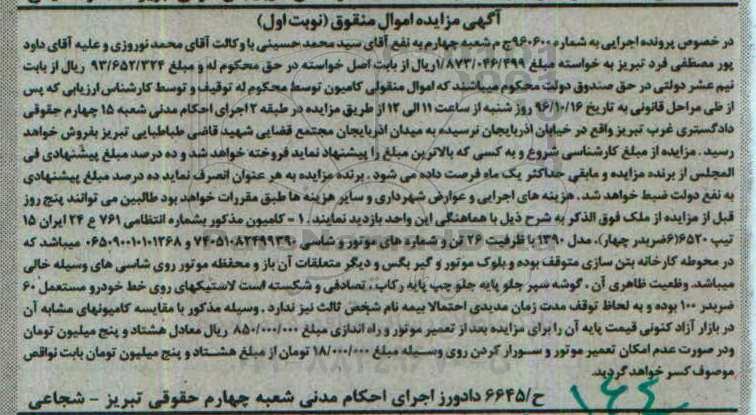 آگهی مزایده اموال منقوق (نوبت اول)
در خصوص پرونده اجرایی به شماره ۹۶۰۶۰۰ج م شعبه چهارم به نفع آقای سید محمد حسینی با وکالت آقای محمد نوروزی و علیه آقای داود
پور مصطفی فرد تبریز به خواسته مبلغ ۱/۸۷۳/۰۴۶/۴۹۹ریال از بابت اصل خواسته در حق محکوم له و مبلغ ۹۳/۶۵۲/۳۲۴ ریال از بابت
نیم عشر دولتی در حق صندوق دولت محکوم میباشند که اموال منقولی کامیون توسط محکوم له توقیف و توسط کارشناس ارزیابی که پس
از طی مراحل قانونی به تاریخ ۹۶/۱۰/۱۶ روز شنبه از ساعت ۱۱ الی ۱۲ از طریق مزایده در طبقه ۲اجرای احکام مدنی شعبه ۱۵ چهارم حقوقی
دادگستری غرب تبریز واقع در خیابان آذربایجان نرسیده به میدان اذربایجان مجتمع قضایی شهید قاضی طباطبایی تبریز بفروش خواهد
رسید . مزایده از مبلغ کارشناسی شروع و به کسی که بالاترین مبلغ را پیشنهاد نماید فروخته خواهد شد و ده درصد مبلغ پیشنهادی فی
المجلس از برنده مزایده و مابقی حداکثر یک ماه فرصت داده می شود . برنده مزایده به هر عنوان انصرف نماید ده درصد مبلغ پیشنهادی
به نفع دولت ضبط خواهد شد . هزینه های اجرایی و عوارض شهرداری و سایر هزینه ها طبق مقررات خواهد بود طالبین می توانند پنج روز
قبل از مزایده از ملک فوق الذکر به شرح ذیل با هماهنگی این واحد بازدید نمایند . ۱ - کامیون مذکور بشماره انتظامی ۷۶۱ ع ۲۴ ایران ۱۵
تیپ ۶۵۲۰(۶ضربدر چهار)، مدل ۱۳۹۰ با ظرفیت ۲۶ تن و شماره های موتور و شاسی ۷۴۰۵۱۰۸۲۴۹۹۳۹۰ و ۰۶۵۰۹۰۰۱۰۱۰۱۲۶۸ میباشد که
در محوطه کارخانه بتن سازی متوقف بوده و بلوک موتور و گیر بگس و دیگر متعلقات آن باز و محفظه موتور روی شاسی های وسیله خالی
میباشد. وظعیت ظاهری آن . گوشه سپر جلو پایه جلو چپ پایه رکاب . تصادفی و شکسته است لاستیکهای روی خط خودرو مستعمل ۶۰
ضربدر ۱۰۰ بوده و به لحاظ توقف مدت زمان مدیدی احتمالا بیمه نام شخص ثالث نیز ندارد . وسیله مذکور با مقایسه کامیونهای مشابه آن
در بازار آزاد کنونی قیمت پایه آن را برای مزایده بعد از تعمیر موتور و راه اندازی مبلغ ۸۵۰/۰۰۰/۰۰۰ ریال معادل هشتاد و پنج میلیون تومان
ودر صورت عدم امکان تعمیر موتور و سورار کردن روی وسیله مبلغ ۱۸/۰۰۰/۰۰۰ تومان از مبلغ هشتاد و پنج میلیون تومان بابت نواقص
موصوف کسر خواهد گردید.
ح/۶۶۴۵ دادورز اجرای احکام مدنی شعبه چهارم حقوقی تبریز - شجاعی